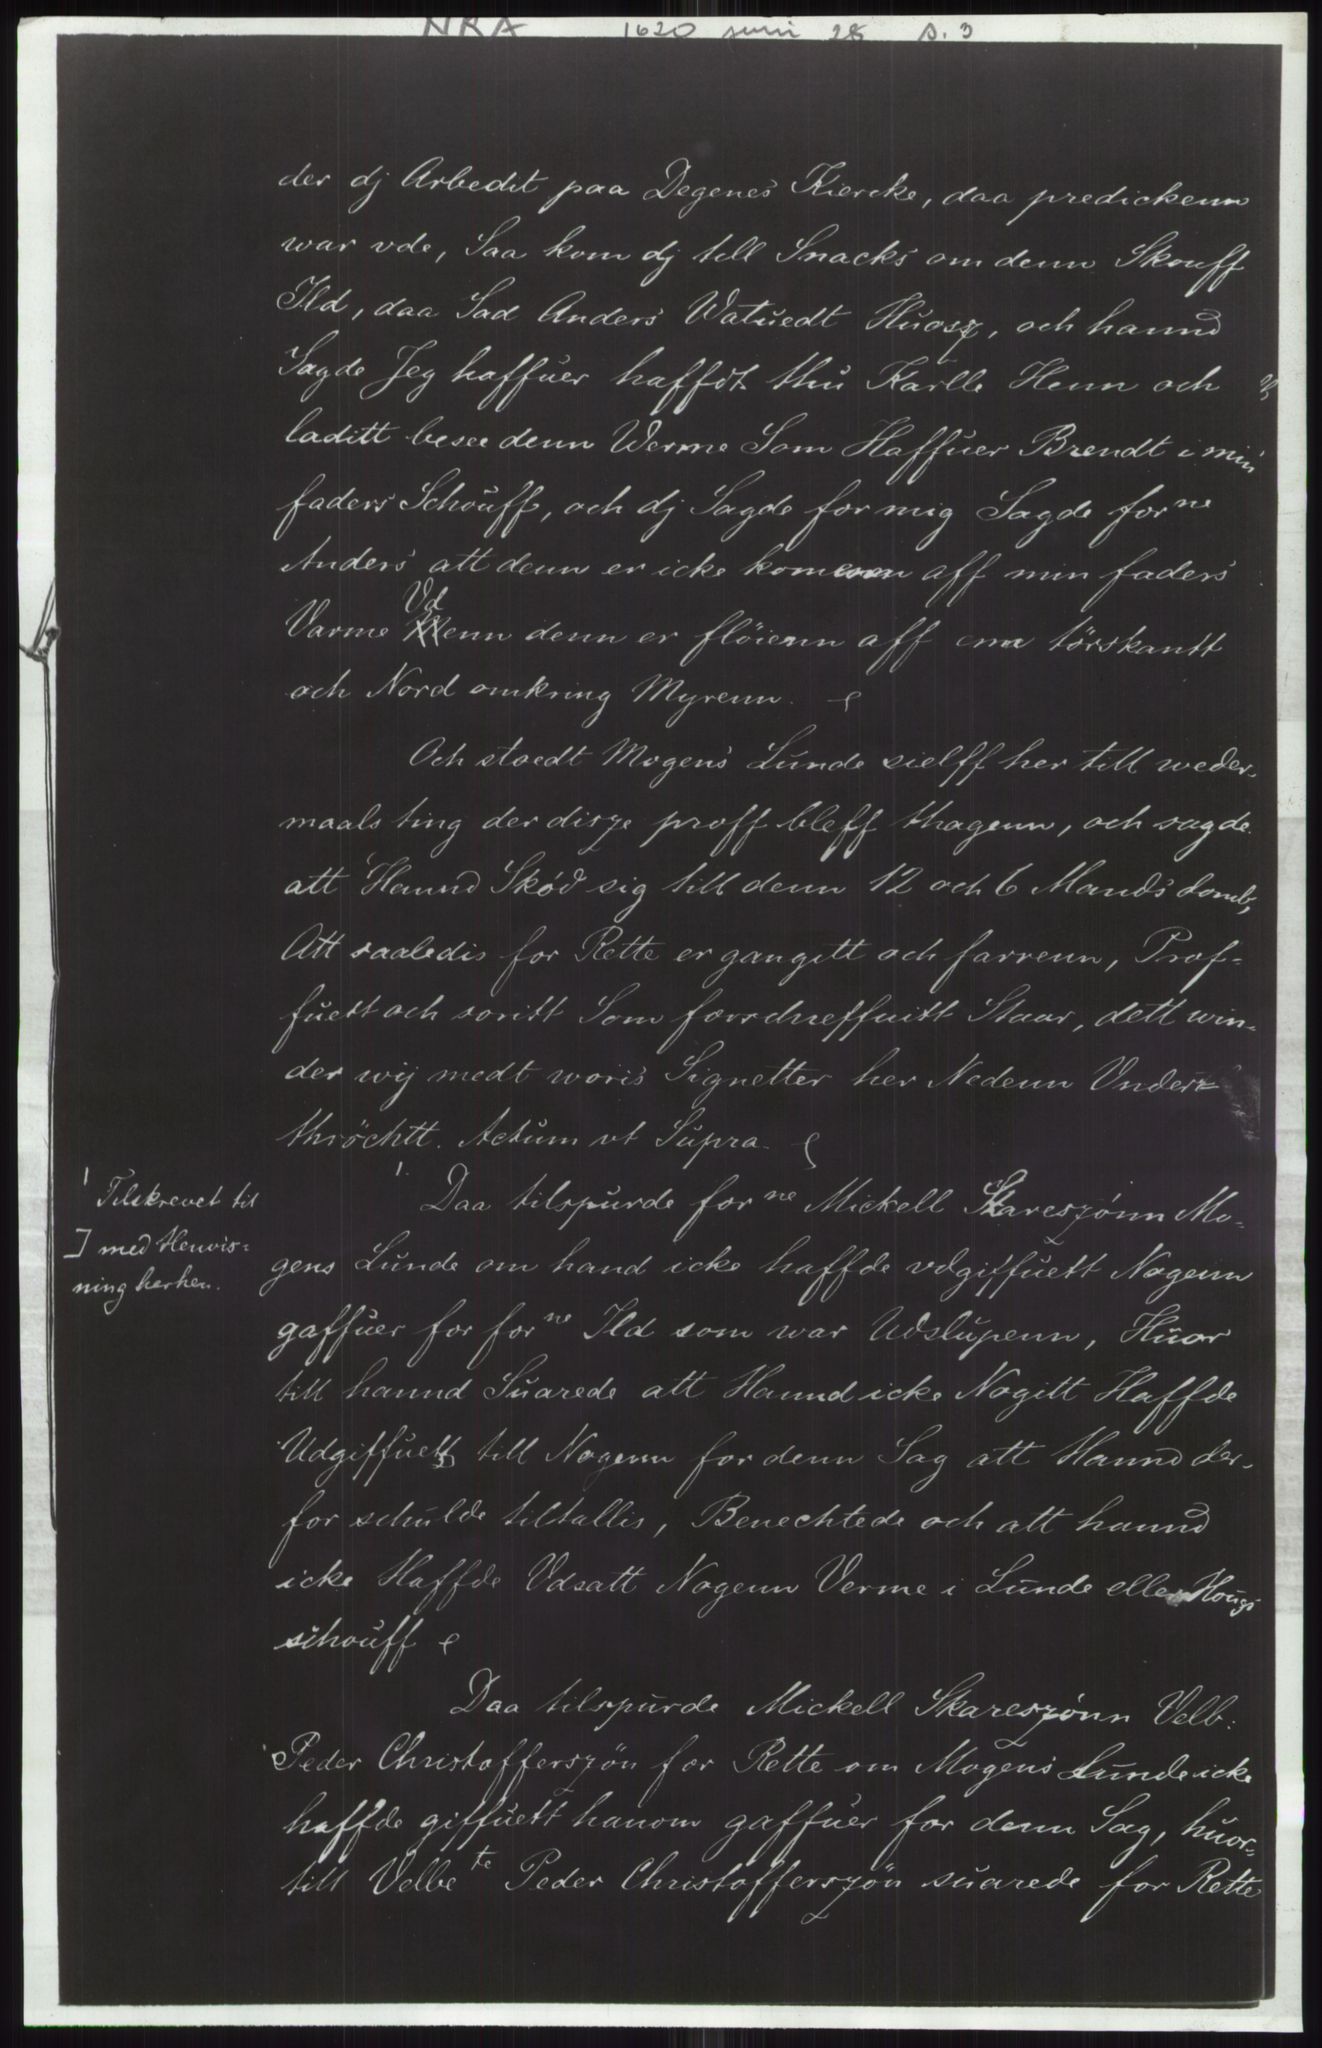 NRA 1620 juni 28 s. 3
der dj Arbedit paa Degenes Kiercke, daa predickenn
war vde, Saa kom dj till Snacks om denn Skouff
Ild, daa Sad Anders Watuedt Huosz, och hannd
Sagde Jeg haffuer haffdt thu Karlle Henn och
laditt besee denn Werme Som Haffuer Brendt i min
faders Schouff, och dj Sagde for mig Sagde forne
Anders att denn er icke kommen aff min faders
Varme Vdenn denn er flöienn aff enn törskantt
och Nord omkring Myrenn.
Och stoedt Mogens Lunde sielff her till weder-
maals ting der disze proff bleff thagenn, och sagde
att Hannd Skød sig till denn 12 och 6 Mands domb,
Att saaledis for Rette er gangett och farrenn, Prof-
fuett och soritt Som forschreffuitt Staar, dett win-
der wij medt woris Signetter her Nedenn Under-
thröchtt. Actum ut Supra.
1. Daa tilspurde forne Mickell Skareszønn Mo-
gens Lunde om hand icke haffde vdgiffuett Nogenn
gaffuer for forne Ild som war Udslupenn, Huor
till hannd Suarede att Hannd icke Nogitt Haffde
Udgiffuett till Nogenn for denn Sag att Hannd der-
for schulde tiltallis, Benechtede och att hannd
icke Haffde Vdsatt Nogenn Verme i Lunde eller Hougs
schouff
Daa tilspurde Mickell Skareszønn Velb:
Peder Christofferszøn for Rette om Mogens Lunde icke
haffde giffuett hanom gaffuer for denn Sag, huor-
till Velbete Peder Christofferszön suarede for Rette
1 Tilskrevet til
] med Henvis-
ning herhen.